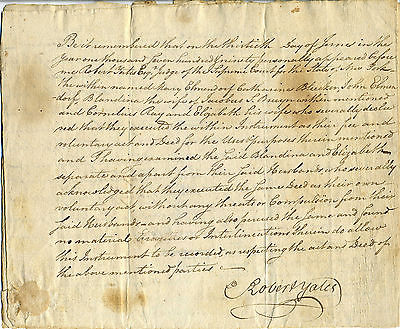 Be it remembered that on the thirtieth Day of James in the
year one thousand seven hundred & ninety personally appeared before
me Robert Yates Esqr. Judge of the Supreme Court for the State of New York
the within named Mary Elmendorf Catharine Bleecker John Elmen
dorf Blandina the wife of Jacobus S. Bruyn within mentioned
and Cornelius Ray and Elizabeth his wife who severally decla
red that they executed the within Instrument as their free and
voluntary act and Deed for the Uses & purposes therein mentioned
and I having examined the said Blandina and Elizabeth
separate and apart from their said Husbands, who severally
acknowledged that they executed the same Deed as their own
voluntary act without any threats or Compulsion from their
said Husbands and having also perused the same and found
no material Erazures or Interlineations therein do allow
this Instrument to be recorded, as respecting the act and Deed of
the above mentioned parties
Robert Yates